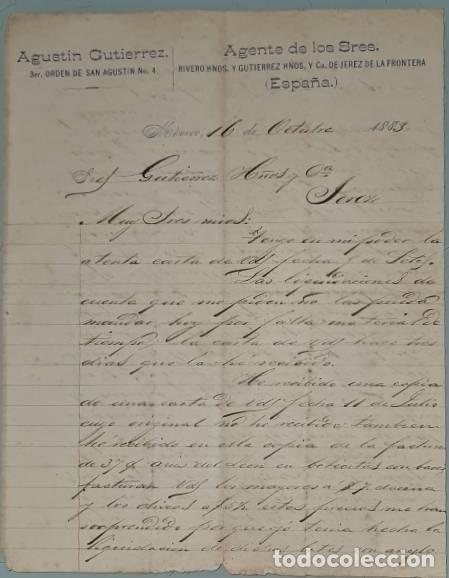 Agustin Gutierrez.
3er. ORDEN DE SAN AGUSTIN No. 4
Agente de los Sres.
RIVERO HNOS. Y GUTIERREZ HNOS. Y Ca. DE JEREZ DE LA FRONTERA
(España.)
16 de Octubre 1883
Gutierrez Hños y Ca
Jerez
Muy Sres mios:
Tengo en mi poder la
atenta carta de Vds fecha de
Las liquidaciones de
cuenta que me piden no las puedo
mandar hoy por falta material de
tiempo la carta de Vds hace tres
dias que la he recibido.
He recibido una copia
de una carta de Vds fecha 11 de Julio
cuyo original no he recibido tambien
he recibido en esta copia de la factura
de 37 anis del Leon en botellas con
facturan Vds los mayores a $7. docena
y los chicos a estos precios me han
sorprendido porque yo tenia hecha la
liquidacion de
todocoleccion.net